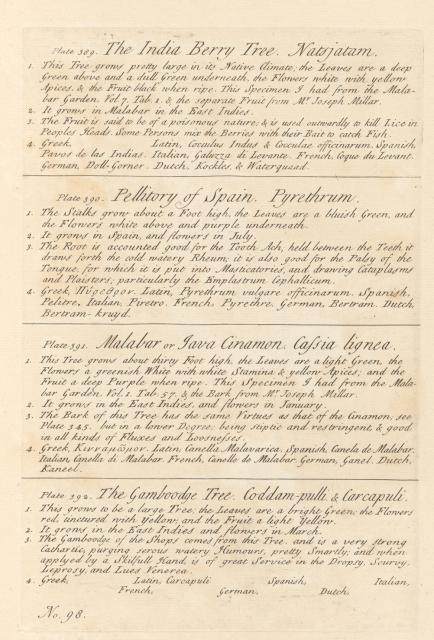 Plate 389. The India Berry Tree. Natsjatam.
1. This Tree grows pretty large in its Native Climate; the Leaves are a deep
Green above and a dull Green underneath, the Flowers white with yellow
Apices, & the Fruit black when ripe. This Specimen I had from the Mala-
bar Garden, Vol. 7. Tab. 1. & the separate Fruit from Mr. Joseph Millar.
2. It grows in Malabar in the East Indies.
3. The Fruit is said to be of a poisonous nature, & is used outwardly to kill Lice in
Peoples Heads. Some Persons mix the Berries with their Bait to catch Fish.
4. Greek, Latin, Cocculus Indus & Cocculae officinarum. Spanish,
Pavos de las Indias. Italian, Galuzza di Levante. French, Coque du Levant.
German, Doll-Gorner. Dutch, Kockles, & Waterquaad.
Plate 390. Pellitory of Spain. Pyrethrum.
1. The Stalks grow about a Foot high, the Leaves are a bluish Green, and
the Flowers white above and purple underneath.
2. It grows in Spain, and flowers in July.
3. The Root is accounted good for the Tooth Ach, held between the Teeth it
draws forth the cold watery Rheum; it is also good for the Palsy of the
Tongue, for which it is put into Masticatories, and drawing Cataplasms
and Plaisters, particularly the Emplastrum Cephallicum.
4. Greek, Πύρεθρον. Latin, Pyrethrum vulgare officinarum. Spanish,
Pelitre, Italian, Piretro. French, Pyrethre, German, Bertram. Dutch,
Bertram-kruyd.
Plate 391. Malabar or Java Cinamon. Cassia lignea.
1. This Tree grows about thirty Foot high, the Leaves are a light Green, the
Flowers a greenish White with white Stamina & yellow Apices; and the
Fruit a deep Purple when ripe. This Specimen I had from the Mala-
bar Garden, Vol. 1. Tab. 57. & the Bark from Mr. Joseph Millar.
2. It grows in the East Indies, and flowers in January.
3. The Bark of this Tree has the same Virtues as that of the Cinamon; see
Plate 345. but in a lower Degree; being stiptic and restringent, & good
in all kinds of Fluxes and Loosnesses.
4. Greek, Κινναμωμον. Latin, Canella Malavarica. Spanish, Canela de Malabar.
Italian, Canella di Malabar. French, Canelle de Malabar. German, Ganel. Dutch,
Kaneel.
Plate 392. The Gamboodge Tree. Coddam-pulli, & Carcapuli.
1. This grows to be a large Tree; the Leaves are a bright Green, the Flowers
red, tinctured with Yellow; and the Fruit a light Yellow.
2. It grows in the East Indies and flowers in March.
3. The Gamboodge of the Shops comes from this Tree, and is a very strong
Cathartic, purging serous watery Humours, pretty Smartly; and when
applyed by a Skilfull Hand, is of great Service in the Dropsy, Scurvy,
Leprosy, and Lues Venerea.
4. Greek, Latin, Carcapuli Spanish, Italian,
French, German, Dutch,
No. 98.